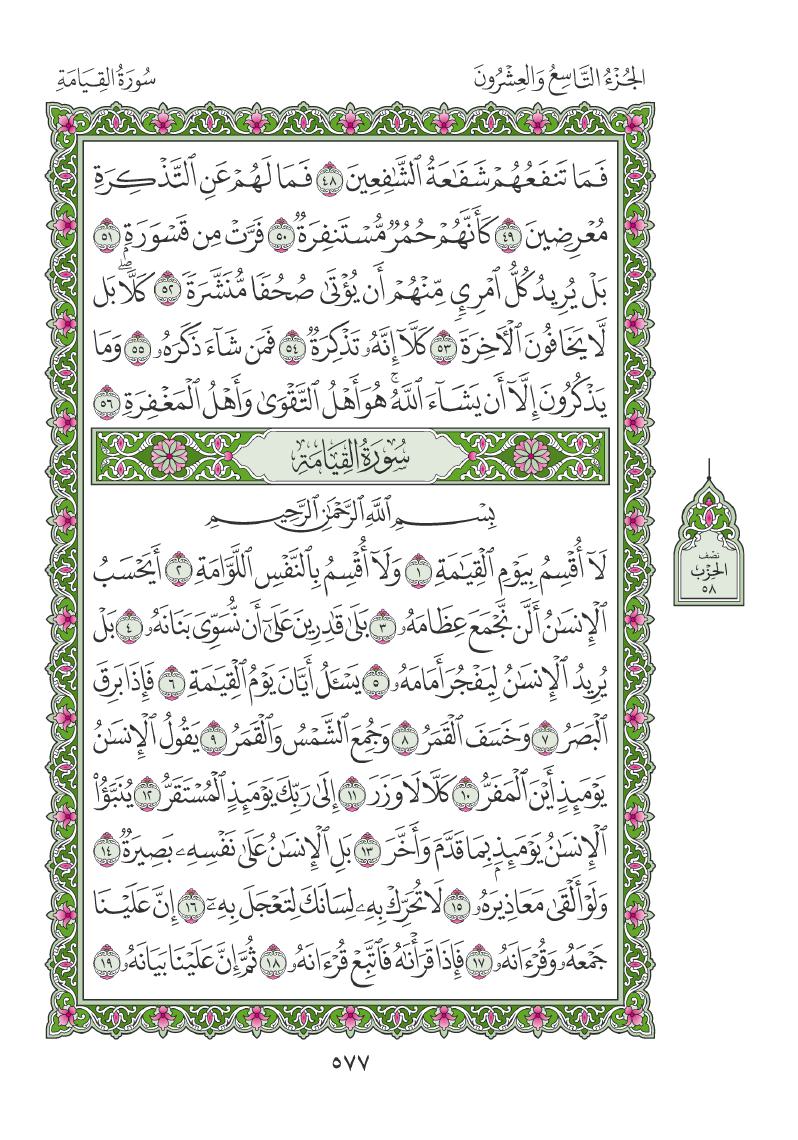 الجُزْءُ التَّاسِعُ وَالعِشْرُونَ
سُورَةُ القِيَامَةِ
فَمَا تَنفَعُهُمْ شَفَٰعَةُ ٱلشَّٰفِعِينَ ٤٨ فَمَا لَهُمْ عَنِ ٱلتَّذْكِرَةِ
مُعْرِضِينَ ٤٩ كَأَنَّهُمْ حُمُرٌ مُّسْتَنفِرَةٌ ٥٠ فَرَّتْ مِن قَسْوَرَةِۭ ٥١
بَلْ يُرِيدُ كُلُّ ٱمْرِئٍ مِّنْهُمْ أَن يُؤْتَىٰ صُحُفًا مُّنَشَّرَةً ٥٢ كَلَّاۖ بَل
لَّا يَخَافُونَ ٱلْأٓخِرَةَ ٥٣ كَلَّآ إِنَّهُۥ تَذْكِرَةٌ ٥٤ فَمَن شَآءَ ذَكَرَهُۥ ٥٥ وَمَا
يَذْكُرُونَ إِلَّآ أَن يَشَآءَ ٱللَّهُۚ هُوَ أَهْلُ ٱلتَّقْوَىٰ وَأَهْلُ ٱلْمَغْفِرَةِ ٥٦
سُورَةُ القِيَامَةِ
بِسْمِ ٱللَّهِ ٱلرَّحْمَٰنِ ٱلرَّحِيمِ
لَآ أُقْسِمُ بِيَوْمِ ٱلْقِيَٰمَةِ ١ وَلَآ أُقْسِمُ بِٱلنَّفْسِ ٱللَّوَّامَةِ ٢ أَيَحْسَبُ
ٱلْإِنسَٰنُ أَلَّن نَّجْمَعَ عِظَامَهُۥ ٣ بَلَىٰ قَٰدِرِينَ عَلَىٰٓ أَن نُّسَوِّىَ بَنَانَهُۥ ٤ بَلْ
يُرِيدُ ٱلْإِنسَٰنُ لِيَفْجُرَ أَمَامَهُۥ ٥ يَسْـَٔلُ أَيَّانَ يَوْمُ ٱلْقِيَٰمَةِ ٦ فَإِذَا بَرِقَ
ٱلْبَصَرُ ٧ وَخَسَفَ ٱلْقَمَرُ ٨ وَجُمِعَ ٱلشَّمْسُ وَٱلْقَمَرُ ٩ يَقُولُ ٱلْإِنسَٰنُ
يَوْمَئِذٍ أَيْنَ ٱلْمَفَرُّ ١٠ كَلَّا لَا وَزَرَ ١١ إِلَىٰ رَبِّكَ يَوْمَئِذٍ ٱلْمُسْتَقَرُّ ١٢ يُنَبَّؤُاْ
ٱلْإِنسَٰنُ يَوْمَئِذِۭ بِمَا قَدَّمَ وَأَخَّرَ ١٣ بَلِ ٱلْإِنسَٰنُ عَلَىٰ نَفْسِهِۦ بَصِيرَةٌ ١٤
وَلَوْ أَلْقَىٰ مَعَاذِيرَهُۥ ١٥ لَا تُحَرِّكْ بِهِۦ لِسَانَكَ لِتَعْجَلَ بِهِۦٓ ١٦ إِنَّ عَلَيْنَا
جَمْعَهُۥ وَقُرْءَانَهُۥ ١٧ فَإِذَا قَرَأْنَٰهُ فَٱتَّبِعْ قُرْءَانَهُۥ ١٨ ثُمَّ إِنَّ عَلَيْنَا بَيَانَهُۥ ١٩
نصف
الحزب
٥٨
٥٧٧